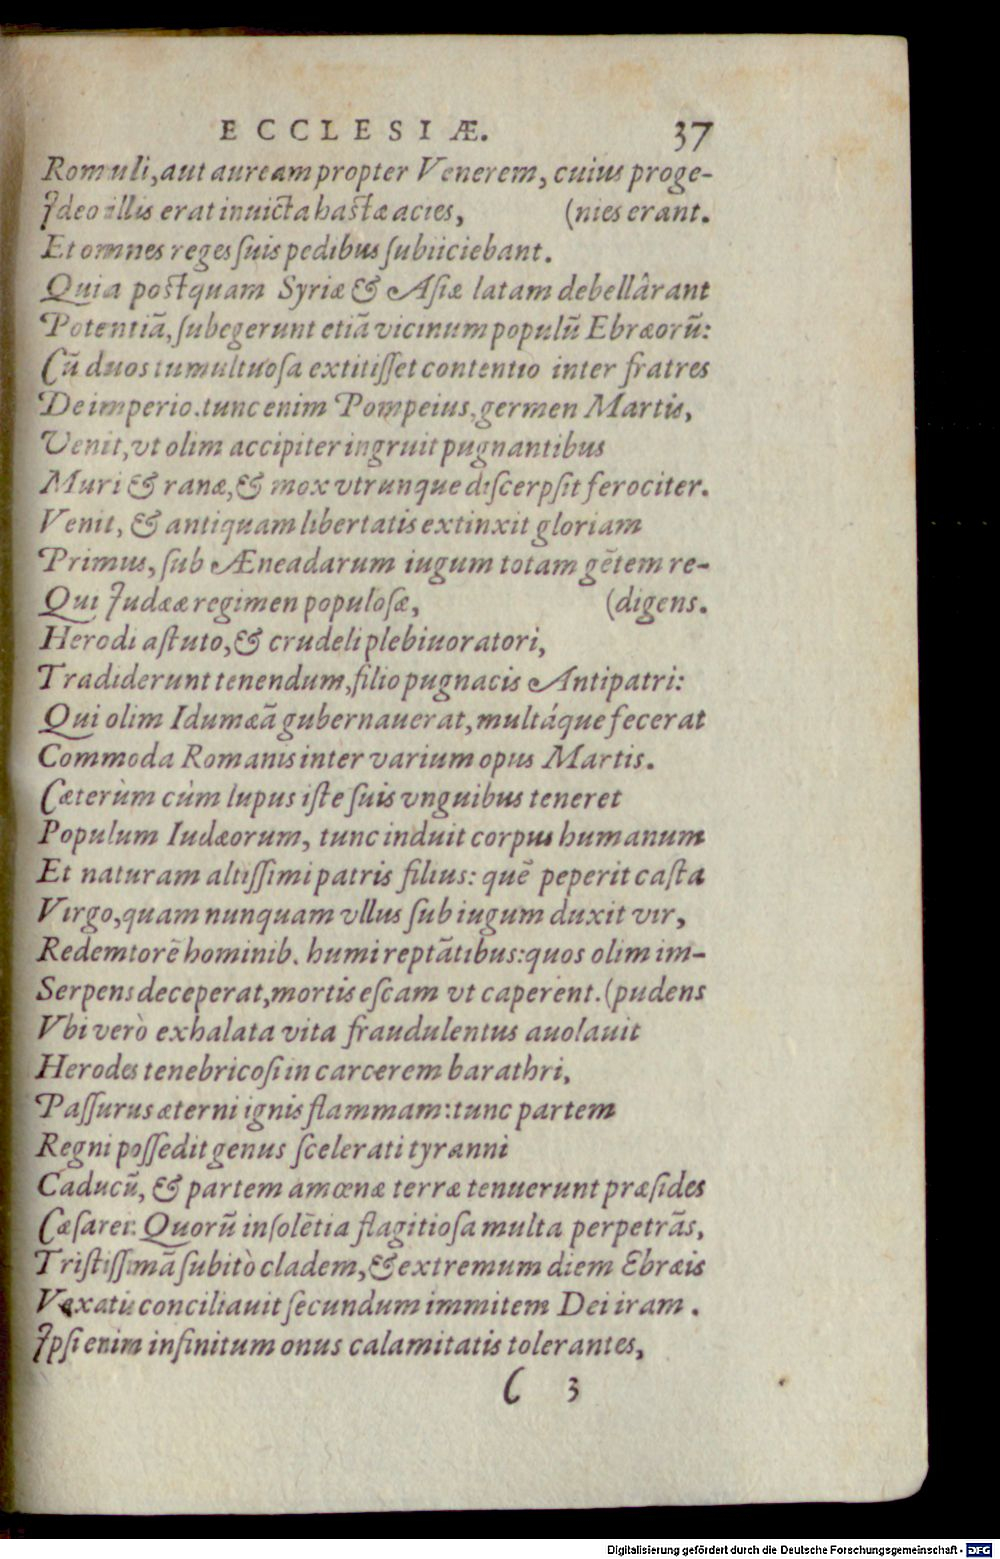 ECCLESIÆ. 37
Romuli, aut auream propter Venerem, cuius proge-
Ideo illis erat inuicta hastæ acies, (nies erant.
Et omnes reges suis pedibus subiiciebant.
Quia postquam Syriæ & Asiæ latam debellârant
Potentiã, subegerunt etiã vicinum populũ Ebræorũ:
Cũ duos tumultuosa extitisset contentio inter fratres
De imperio. tunc enim Pompeius, germen Martis,
Venit, vt olim accipiter ingruit pugnantibus
Muri & ranæ, & mox vtrunque discerpsit ferociter.
Venit, & antiquam libertatis extinxit gloriam
Primus, sub Æneadarum iugum totam gẽtem re-
Qui Iudææ regimen populosæ, (digens.
Herodi astuto, & crudeli plebiuoratori,
Tradiderunt tenendum, filio pugnacis Antipatri:
Qui olim Idumæã gubernauerat, multáque fecerat
Commoda Romanis inter varium opus Martis.
Cæterùm cùm lupus iste suis vnguibus teneret
Populum Iudæorum, tunc induit corpus humanum
Et naturam altissimi patris filius: quẽ peperit casta
Virgo, quam nunquam vllus sub iugum duxit vir,
Redemtorẽ hominib. humi reptãtibus: quos olim im-
Serpens deceperat, mortis escam vt caperent. (pudens
Vbi verò exhalata vita fraudulentus auolauit
Herodes tenebricosi in carcerem barathri,
Passurus æterni ignis flammam: tunc partem
Regni possedit genus scelerati tyranni
Caducũ, & partem amœnæ terræ tenuerunt præsides
Cæsarei. Quorũ insolẽtia flagitiosa multa perpetrãs,
Tristissimã subitò cladem, & extremum diem Ebræis
Vexatis conciliauit secundum immitem Dei iram.
Ipsi enim infinitum onus calamitatis tolerantes,
C 3
Digitalisierung gefördert durch die Deutsche Forschungsgemeinschaft - DFG